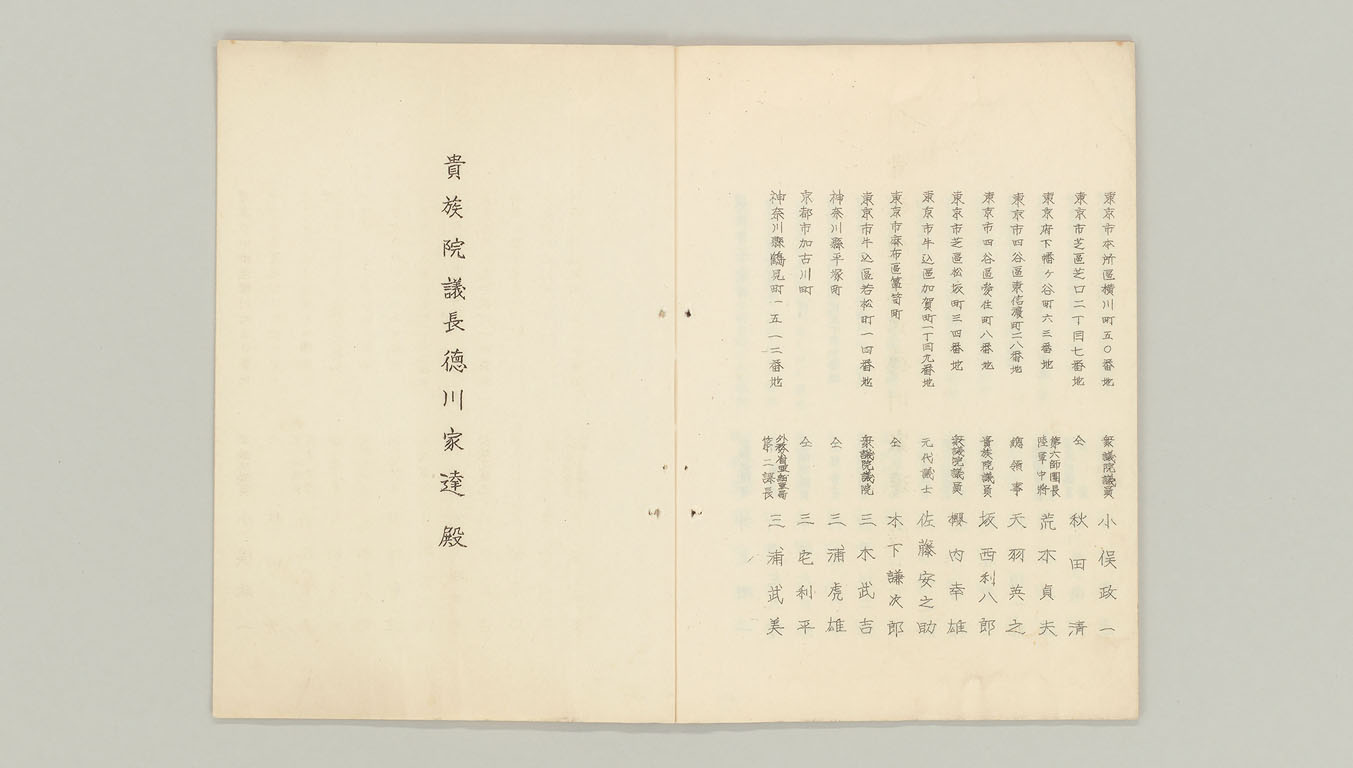 東京市本所區横川町五〇番地 衆議院議員 小俣政一
東京市芝區芝口二丁目七番地 仝 秋田清
東京府下幡ヶ谷町六三番地 第六師團長 陸軍中將 荒木貞夫
東京市四谷區東信濃町二八番地 總領事 天羽英之
東京市四谷區愛住町八番地 貴族院議員 坂西利八郎
東京市芝區松坂町三四番地 衆議院議員 櫻内幸雄
東京市牛込區加賀町一丁目九番地 元代議士 佐藤安之助
東京市麻布區簞笥町 仝 木下謙次郎
東京市牛込區若松町一四番地 衆議院議院 三木武吉
神奈川縣平塚町 仝 三浦虎雄
京都市加古川町 仝 三宅利平
神奈川縣鶴見町一五一二番地 外務省亞細亞局 第二課長 三浦武美
貴族院議長徳川家達殿